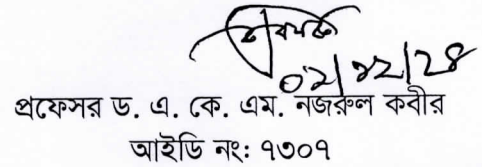 ০২/১২/২৪
প্রফেসর ড. এ. কে. এম. নজরুল কবীর
আইডি নং: ৭৩০৭